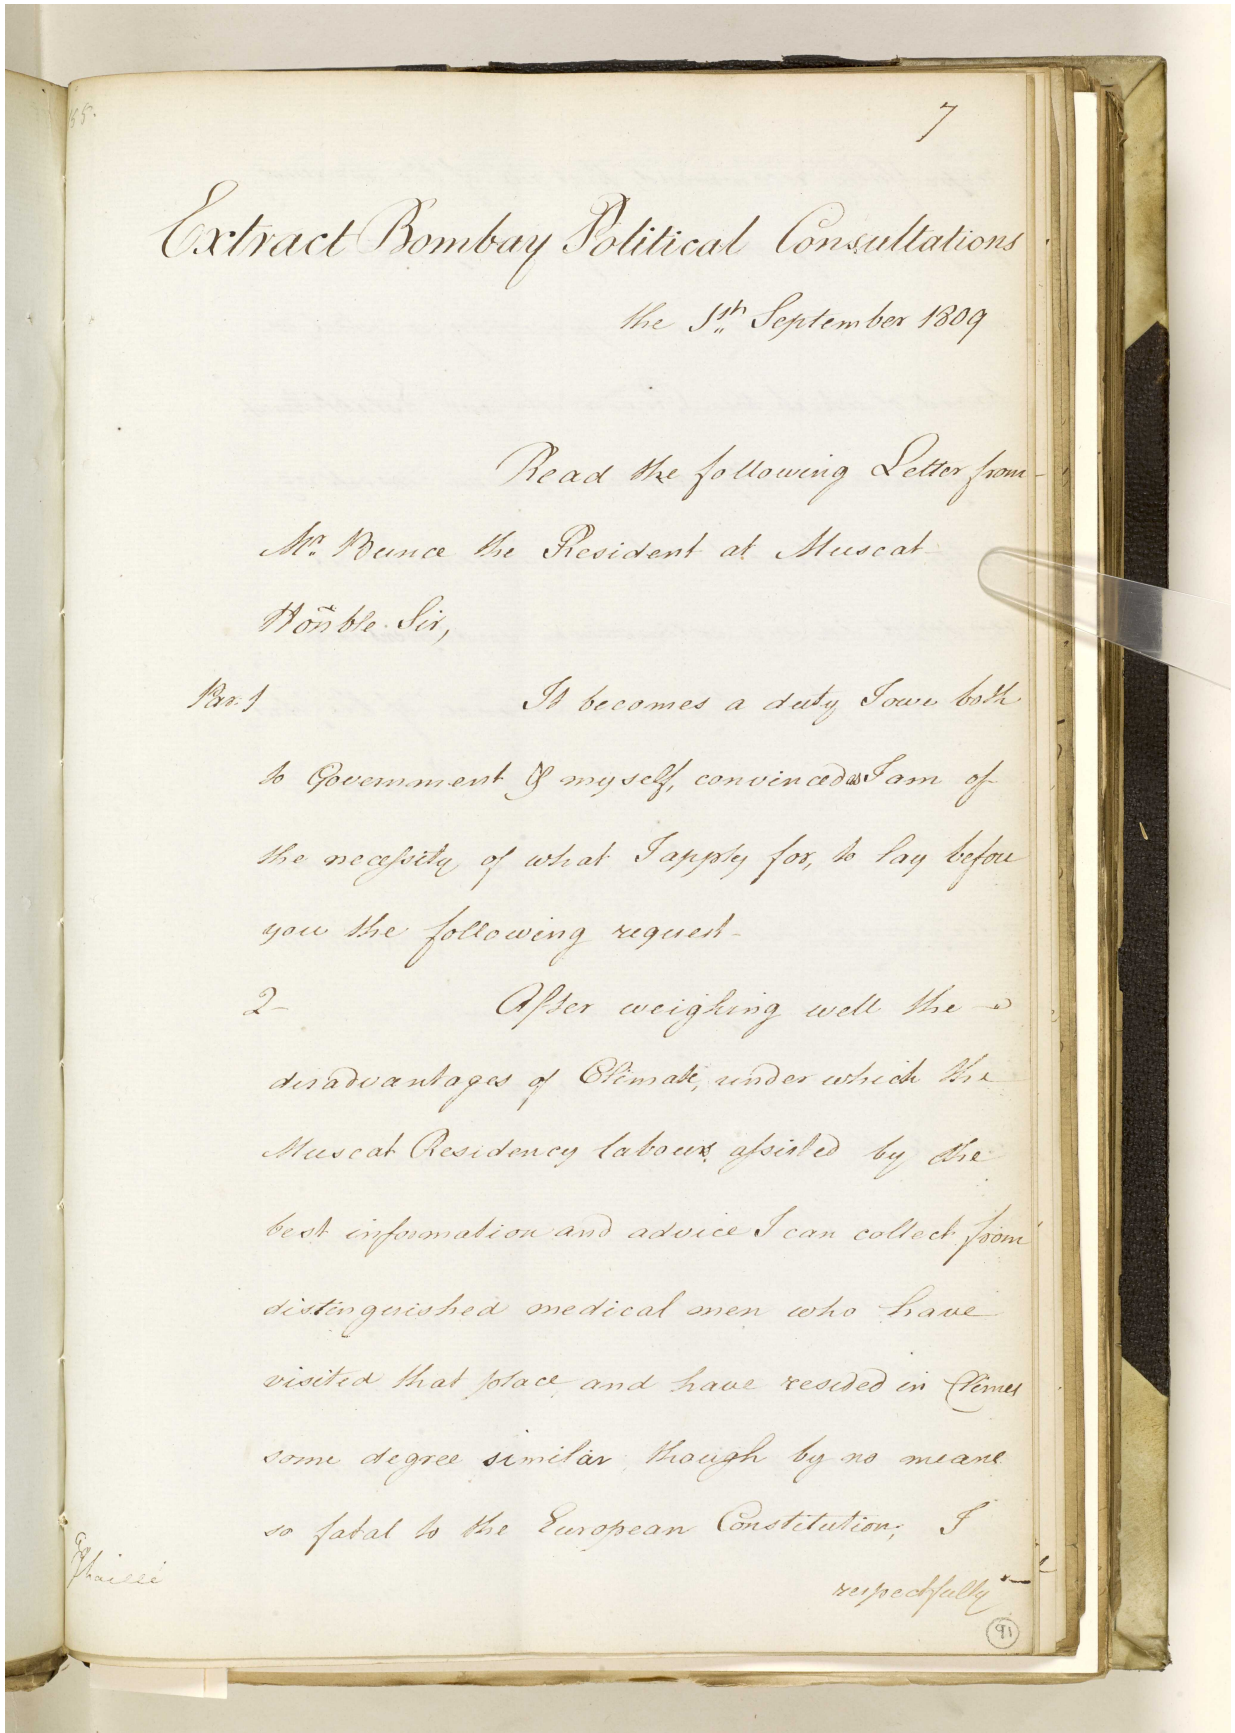 7
Extract Bombay Political Consultations
the 1st September 1809
Read the following Letter from
Mr. Bunce the Resident at Muscat
Honble Sir,
Par: 1 It becomes a duty I owe both
to Government & myself, convinced as I am of
the necessity of what I apply for, to lay before
you the following request-
2- After weighing well the
disadvantages of Climate, under which the
Muscat Residency labours, assisted by the
best information and advice I can collect from
distinguished medical men who have
visited that place and have resided in Climes
some degree similar though by no means
so fatal to the European Constitution; I
respectfully
91